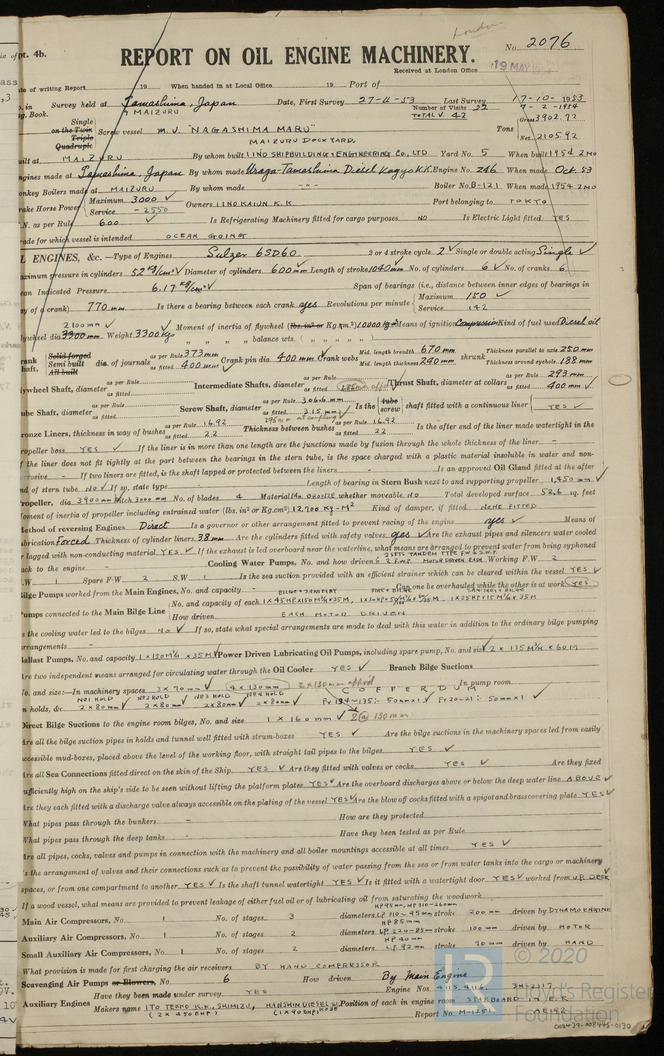 pt. 4b.
London
REPORT ON OIL ENGINE MACHINERY.
No. 2076
Received at London Office 19 MAY
of writing Report 19 When handed in at Local Office 19 Port of
Survey held at Tamashima, Japan Date, First Survey 27-4-53 Last Survey 17-10-1953
Book. MAIZURU Number of Visits 22 9-2-1954
TOTAL V. 42
Single on the Twin Triple Quadruple Screw vessel M.V. "NAGASHIMA MARU" Tons Gross 3902.72 Net 2105.92
MAIZURU DOCKYARD,
built at MAIZURU By whom built IINO SHIPBUILDING & ENGINEERING Co., LTD Yard No. 5 When built 1954 2 MO
Engines made at Tamashima, Japan By whom made Uraga-Tamashima Diesel Kogyo K.K. Engine No. 246 When made Oct. 53
Donkey Boilers made at MAIZURU By whom made -"- Boiler No. B-121 When made 1954 2 MO
Brake Horse Power Maximum 3000 Service 2550 Owners IINO KAIUN K.K. Port belonging to TOKYO
N. as per Rule 600 Is Refrigerating Machinery fitted for cargo purposes NO Is Electric Light fitted YES
Trade for which vessel is intended OCEAN GOING
OIL ENGINES, &c.—Type of Engines Sulzer 6SD60 2 or 4 stroke cycle 2 Single or double acting Single
Maximum pressure in cylinders 52 kg/cm² Diameter of cylinders 600 mm Length of stroke 1040 mm No. of cylinders 6 No. of cranks 6
Mean Indicated Pressure 6.17 kg/cm² Span of bearings (i.e., distance between inner edges of bearings in
way of a crank) 770 mm Is there a bearing between each crank yes Revolutions per minute Maximum 150 Service 142
Flywheel dia. 2100 mm Weight 3300 kg Moment of inertia of flywheel (lbs. in² or Kg.cm²) 10000 kgm² Means of ignition Compression Kind of fuel used Diesel oil
" " balance wts. ( " " " " )
Crank Shaft, Solid forged Semi built All built dia. of journals as per Rule 373 mm as fitted 400 mm Crank pin dia. 400 mm Crank webs Mid. length breadth 670 mm Mid. length thickness 240 mm shrunk Thickness parallel to axis 250 mm Thickness around eyehole 188 mm
Flywheel Shaft, diameter as per Rule as fitted Intermediate Shafts, diameter as per Rule as fitted Thrust Shaft, diameter at collars as per Rule 293 mm as fitted 400 mm
Tube Shaft, diameter as per Rule as fitted Screw Shaft, diameter as per Rule 306.6 mm as fitted 315 mm Is the tube screw shaft fitted with a continuous liner YES
295 mm at coupling
Bronze Liners, thickness in way of bushes as per Rule 16.92 as fitted 22 Thickness between bushes as per Rule 16.92 as fitted 22 Is the after end of the liner made watertight in the
propeller boss YES If the liner is in more than one length are the junctions made by fusion through the whole thickness of the liner -
If the liner does not fit tightly at the part between the bearings in the stern tube, is the space charged with a plastic material insoluble in water and non-
corrosive - If two liners are fitted, is the shaft lapped or protected between the liners Is an approved Oil Gland fitted at the after
end of stern tube NO If so, state type - Length of bearing in Stern Bush next to and supporting propeller 1,450 mm
Propeller, dia. 3900 mm Pitch 3000 mm No. of blades 4 Material Mn. BRONZE whether moveable NO Total developed surface 52.6 sq. feet
Moment of inertia of propeller including entrained water (lbs. in² or Kg.cm²) 12,700 KG-M² Kind of damper, if fitted NONE FITTED
Method of reversing Engines Direct Is a governor or other arrangement fitted to prevent racing of the engine yes Means of
lubrication Forced Thickness of cylinder liners 38 mm Are the cylinders fitted with safety valves yes Are the exhaust pipes and silencers water cooled
or lagged with non-conducting material YES If the exhaust is led overboard near the waterline, what means are arranged to prevent water from being syphoned
back to the engine - Cooling Water Pumps, No. and how driven 2 SETS TANDEM TYPE F.W & S.W.P. 2 F.W.P. MOTOR DRIVEN EACH Working F.W. 2
S.W 1 Spare F.W 2 S.W 1 Is the sea suction provided with an efficient strainer which can be cleared within the vessel YES
Bilge Pumps worked from the Main Engines, No. and capacity - Can one be overhauled while the other is at work YES
Pumps connected to the Main Bilge Line No. and capacity of each
How driven EACH MOTOR DRIVEN
Is the cooling water led to the bilges NO If so, state what special arrangements are made to deal with this water in addition to the ordinary bilge pumping
arrangements -
Ballast Pumps, No. and capacity 1 x 150 M³/h x 35M Power Driven Lubricating Oil Pumps, including spare pump, No. and size 2 x 135 M³/h x 60M
Are two independent means arranged for circulating water through the Oil Cooler YES Branch Bilge Suctions
No. and size:—In machinery spaces 3 x 70 mm 4 x 130 mm 2 x 130 mm In pump room
COFFERDUM
In holds, &c. NO1 HOLD 2 x 80 mm NO2 HOLD 2 x 80 mm NO3 HOLD 2 x 80 mm NO4 HOLD 2 x 80 mm Fr 134~135:- 50 mm x 1 Fr 20~21:- 50 mm x 1
Direct Bilge Suctions to the engine room bilges, No. and size 1 x 160 mm 2 @ 130 mm
Are all the bilge suction pipes in holds and tunnel well fitted with strum-boxes YES Are the bilge suctions in the machinery spaces led from easily
accessible mud-boxes, placed above the level of the working floor, with straight tail pipes to the bilges YES
Are all Sea Connections fitted direct on the skin of the Ship YES Are they fitted with valves or cocks YES Are they fixed
sufficiently high on the ship's side to be seen without lifting the platform plates YES Are the overboard discharges above or below the deep water line ABOVE
Are they each fitted with a discharge valve always accessible on the plating of the vessel YES Are the blow off cocks fitted with a spigot and brass covering plate YES
What pipes pass through the bunkers - How are they protected
What pipes pass through the deep tanks - Have they been tested as per Rule
Are all pipes, cocks, valves and pumps in connection with the machinery and all boiler mountings accessible at all times YES
Is the arrangement of valves and their connections such as to prevent the possibility of water passing from the sea or from water tanks into the cargo or machinery
spaces, or from one compartment to another YES Is the shaft tunnel watertight YES Is it fitted with a watertight door YES worked from UP. DECK
If a wood vessel, what means are provided to prevent leakage of either fuel oil or of lubricating oil from saturating the woodwork
Main Air Compressors, No. 1 No. of stages 3 diameters HP 95mm, MP 110-260mm LP 110-95mm stroke 200 mm driven by DYNAMO ENGINE
Auxiliary Air Compressors, No. 1 No. of stages 2 diameters HP 85 mm LP 220-85 mm stroke 100 mm driven by MOTOR
Small Auxiliary Air Compressors, No. 1 No. of stages 2 diameters HP 40 mm LP 92 mm stroke 70 mm driven by HAND
What provision is made for first charging the air receivers BY HAND COMPRESSOR
Scavenging Air Pumps or Blowers, No. 6 How driven By Main Engine
Auxiliary Engines Have they been made under survey YES Engine Nos. 415, 416,
Makers name ITO TEKKO K.K., SHIMIZU, HANSHIN DIESEL Position of each in engine room STARBOARD IN E.R.
(2 x 450 BHP)
Report No. M-1251
© 2020
Lloyd's Register
Foundation